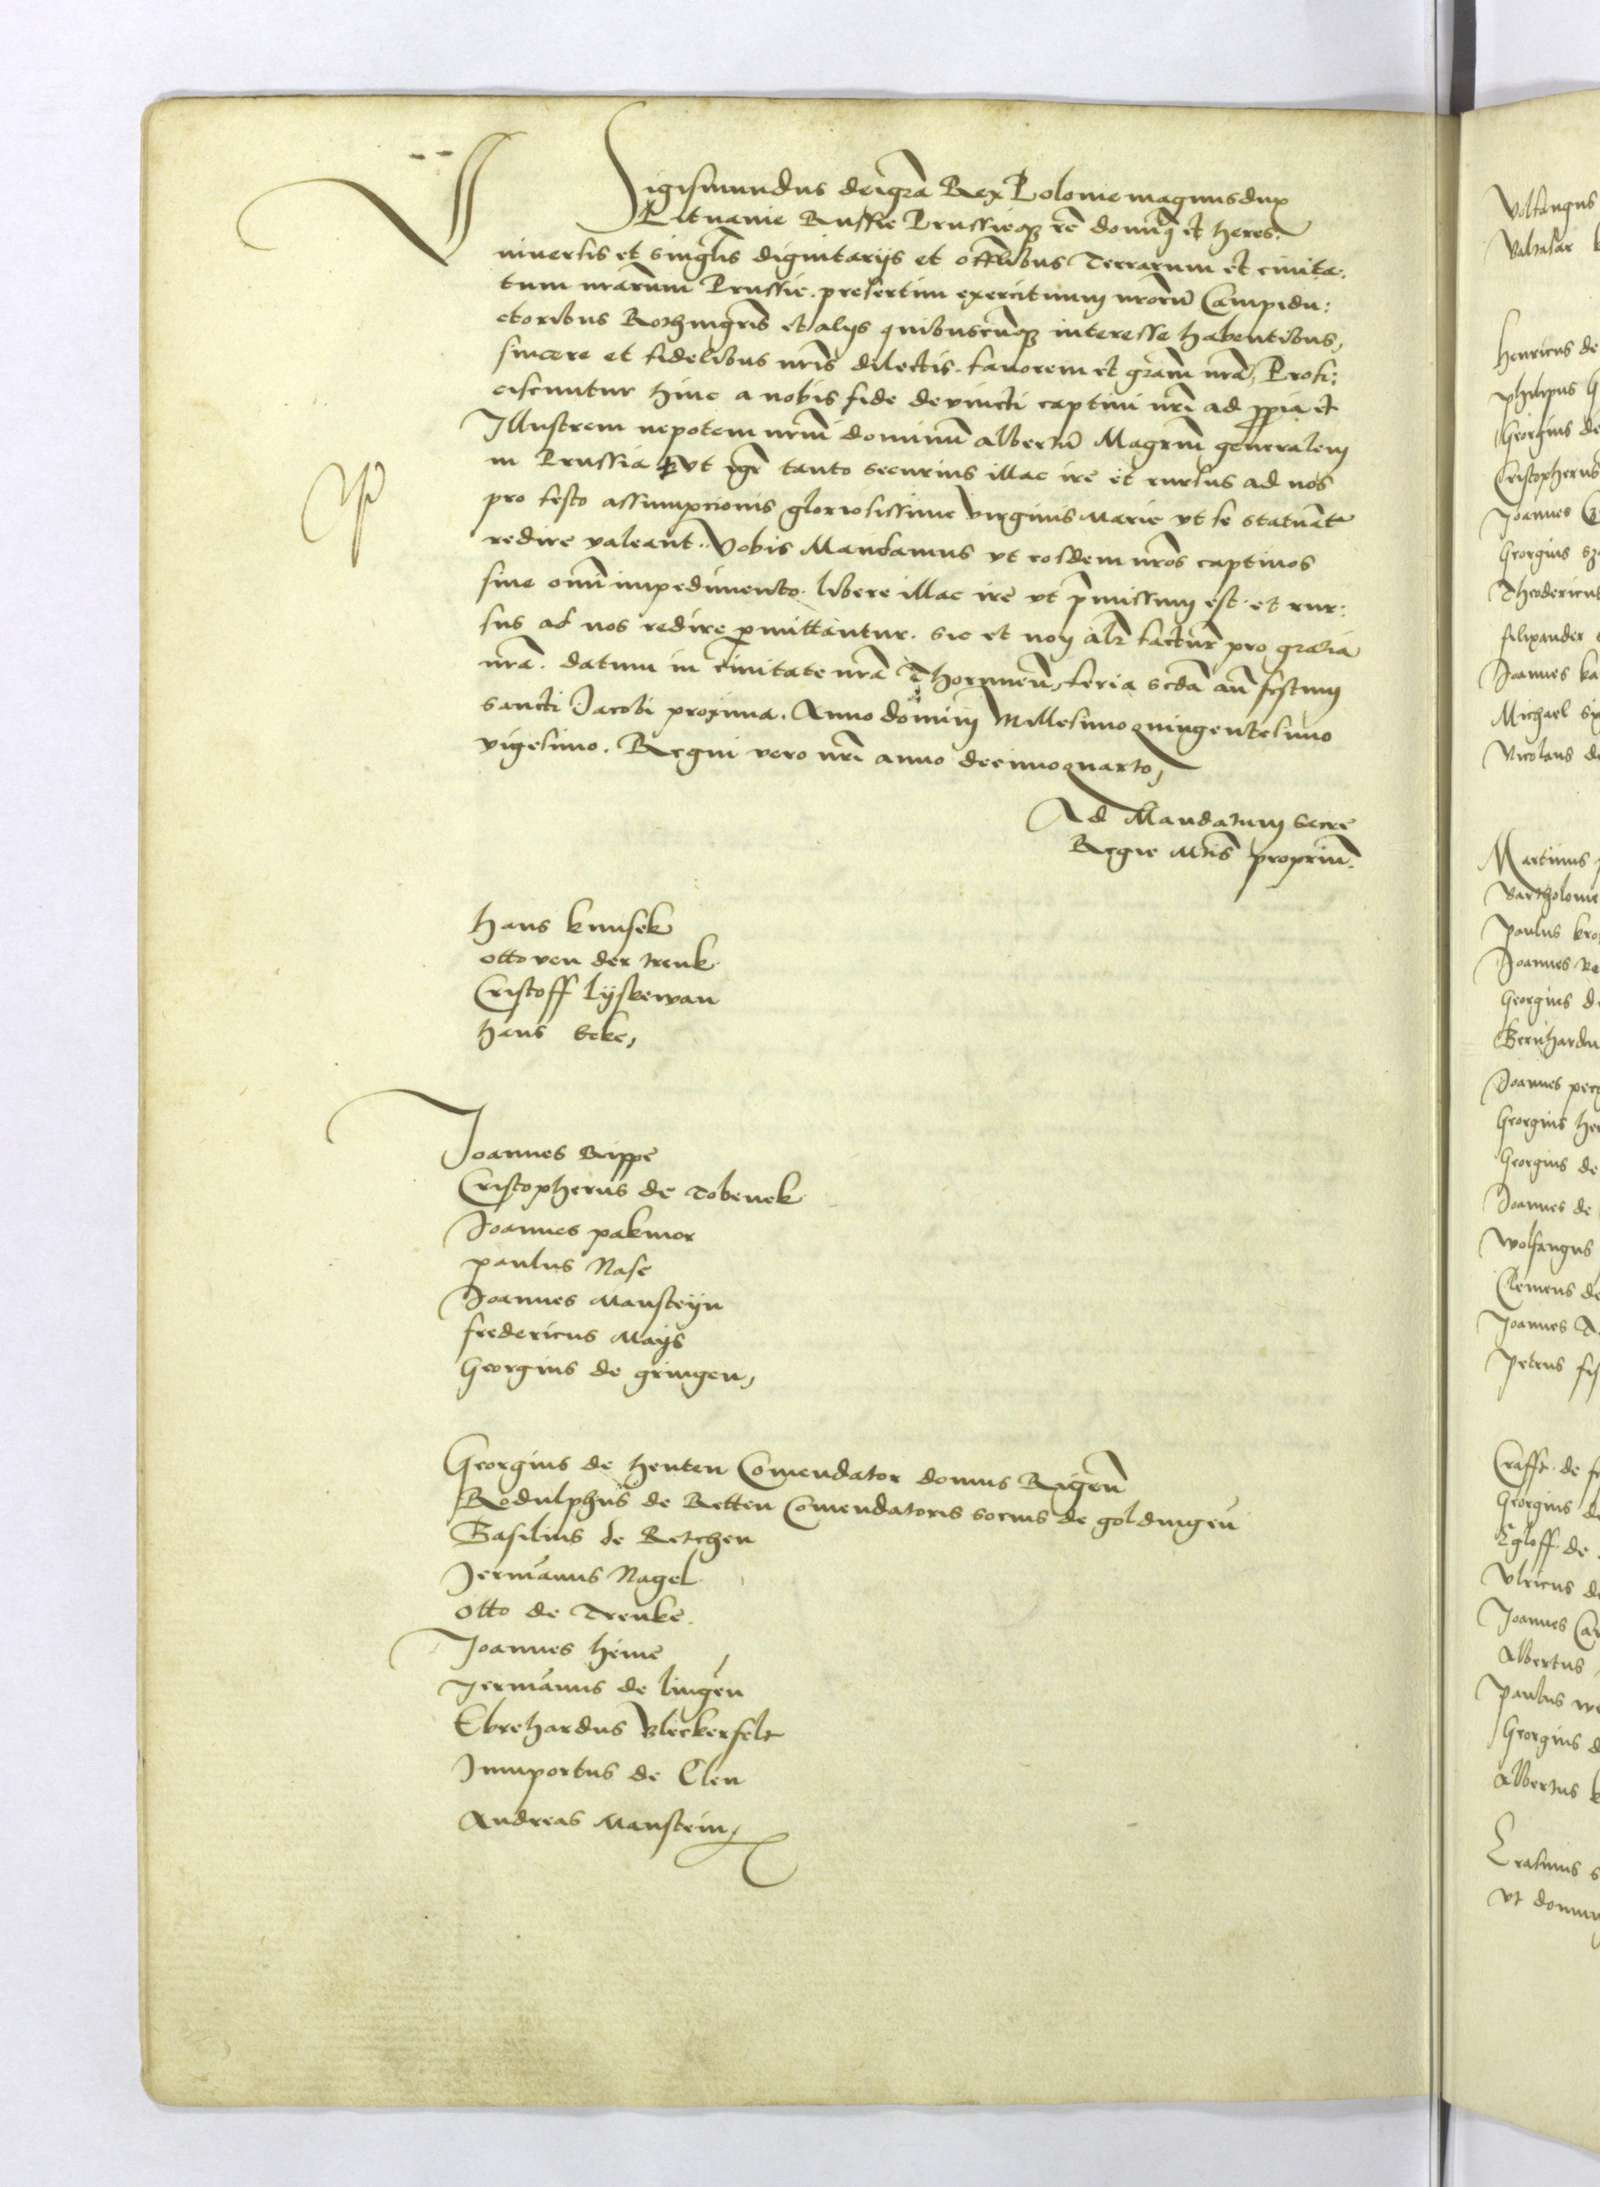 Sigismundus dei gra Rex Polonie magnus dux
Lituanie Russie Prussieq3 re domin9 et heres.
Universis et singlis dignitarijs et offlibus Terrarum et civita.
tum nrarum Prussie. presertim exercituum nroru Campidu:
ctoribus Rothmgris et alijs quibuscunq3 interesse habentibus,
sincere et fidelibus nris dilectis. favorem et gram nram, Profi:
ciscuntur hinc a nobis fide devincti captivi nri ad et
Illustrem nepotem nrm dominu albertu Magrm generalem
in Prussia vt igr tanto securius illac ire et rursus ad nos
pro festo assumpcionis gloriosissime virginis Marie vt se statuat
redire valeant. Vobis Mandamus vt eosdem nros captivos
sine omi impedimento. libere illac ire vt pmissum est. et rur:
sus ad nos redire pmittantur. sic et non alr factur pro gratia
nra. datum in civitate nra Thorunen, feria scda an festum
sancti Jacobi proxima. Anno domini Millesimo quingentesimo
vigesimo. Regni vero nri anno decimoquarto,
Ad Mandatum Sacre
Regie Mtis proprium.
hans knusek
otto von der trenk
Cristoff lyskewan
hans Seke,
Joannes Rippe
Cristopherus de Tobenek
Joannes pakmor
paulus Nase
Joannes Mansteyn
fredericus Mays
Georgius de gringen,
Georgius de henten Comendator domus Rigen
Rodulphus de Retten Comendatoris socius de goldingen
Basilius de Retchen
Jermanus Nagel
otto de Trenke.
Joannes heine
Jermanus de lingen
Ebrehardus Vleckerfelt
Jumportus de Clen
Andreas Manstein,
Volfangus
Valtasar
Henricus de
philipus
Georgius de
Cristopherus
Joannes
Georgius
Theodericus
Joannes ka
Michael
Nicolaus de
Martinus
Bartholome
paulus
Joannes
Georgius de
Bernhardu
Joannes
Georgius
Georgius de
Joannes de
wolfangus
Clemens de
Joannes
petrus
Crafft de
Georgius de
Egloff de
Vlricus de
Joannes
Albertus
paulus
Georgius
Albertus
Erasmus
vt